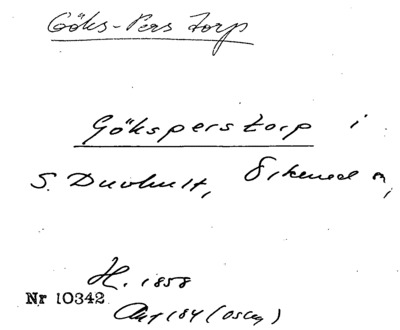 Göks-Pers Torp
Göksperstorp i
S. Duvhult, Örkened sn,
H. 1858
Nr 10342
Akt 184 (OSCG)